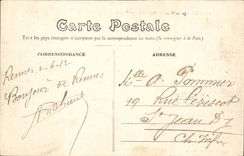 Carte Postale
Tous les pays étrangers n'acceptent pas la correspondance au recto (Se renseigner à la Poste)
CORRESPONDANCE
ADRESSE
Rennes 2-6-12
Bonjour de Rennes
Mlle A Pommier
19 Rue
St Jean d'
Ch. Infre